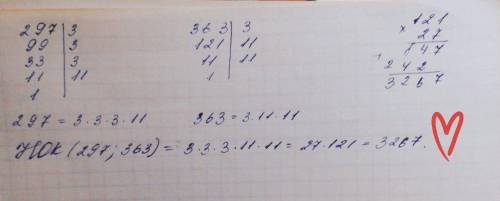 297 | 3
99 | 3
33 | 3
11 | 11
1
363 | 3
121 | 11
11 | 11
1
121
× 27
847
+
242
3267
297 = 3·3·3·11
363 = 3·11·11
НОК (297; 363) = 3·3·3·11·11 = 27·121 = 3267.